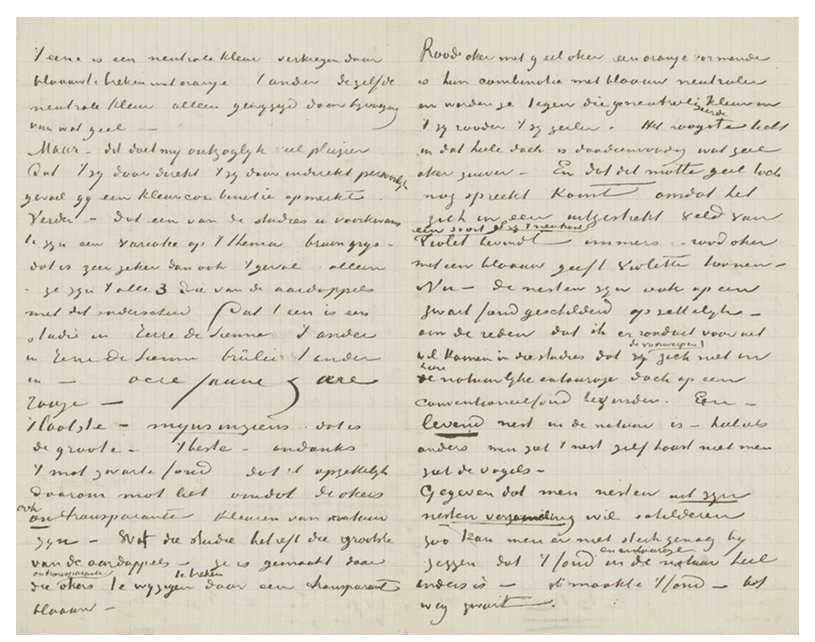 't eene is een neutrale kleur verkregen door
blaauw te breken met oranje 't ander dezelfde
neutrale kleur alleen gewyzigd door byvoeging
van wat geel —
Maar – dit doet my ontzaglyk veel pleizier
Dat 't zy door direkt 't zy door indirekt persoonlyk
gevoel gy een kleurcombinatie opmerkt.
Verder – dat een van de studies u voorkwam
te zyn een variatie op 't thema bruin grys –
dat is zeer zeker dan ook 't geval alleen
– ze zyn 't alle 3 die van de aardappels
met dit onderscheid Dat 't een is een
studie in Terre de Sienne 't ander
in Terre de Sienne brulée 't ander
in — ocre jaune & ocre
rouge —
't laatste – myns inziens dat is
de groote – 't beste – ondanks
't mat zwarte fond dat ik opzettelyk
daarom mat liet omdat de okers
ook
ontransparante kleuren van natuur
zyn – Wat die studie betreft die grootste
van de aardappels – ze is gemaakt door
ontransparante te breken
die okers te wyzigen door een transparant
blaauw –
Roode oker met geel oker een oranje vormende
is hun combinatie met blaauw neutraler
en worden ze tegen die geneutraliseerde kleur in
't zy rooder 't zy geeler. Het hoogste licht
in dat heele doek is doodeenvoudig wat geel
oker zuiver – En dat dit matte geel toch
nog spreekt komt omdat het
zich in een uitgestrekt veld van
een soort al zy 't neutraal
violet bevindt immers – rood oker
met een blaauw geeft violette toonen –
Nu – de nesten zyn ook op een
zwart fond geschilderd opzettelyk –
om de reden dat ik er ronduit voor uit
de voorwerpen
wil komen in die studies dat zy zich niet in
hun
de natuurlyke entourage doch op een
conventioneel fond bevinden. Een –
levend nest in de natuur is – heel iets
anders men ziet 't nest zelf haast niet men
ziet de vogels –
Gegeven dat men nesten uit zyn
nesten verzameling wil schilderen
zoo kan men er niet sterk genoeg by
en entourage
zeggen dat 't fond in de natuur heel
anders is — ik maakte 't fond – bot
weg zwart –.